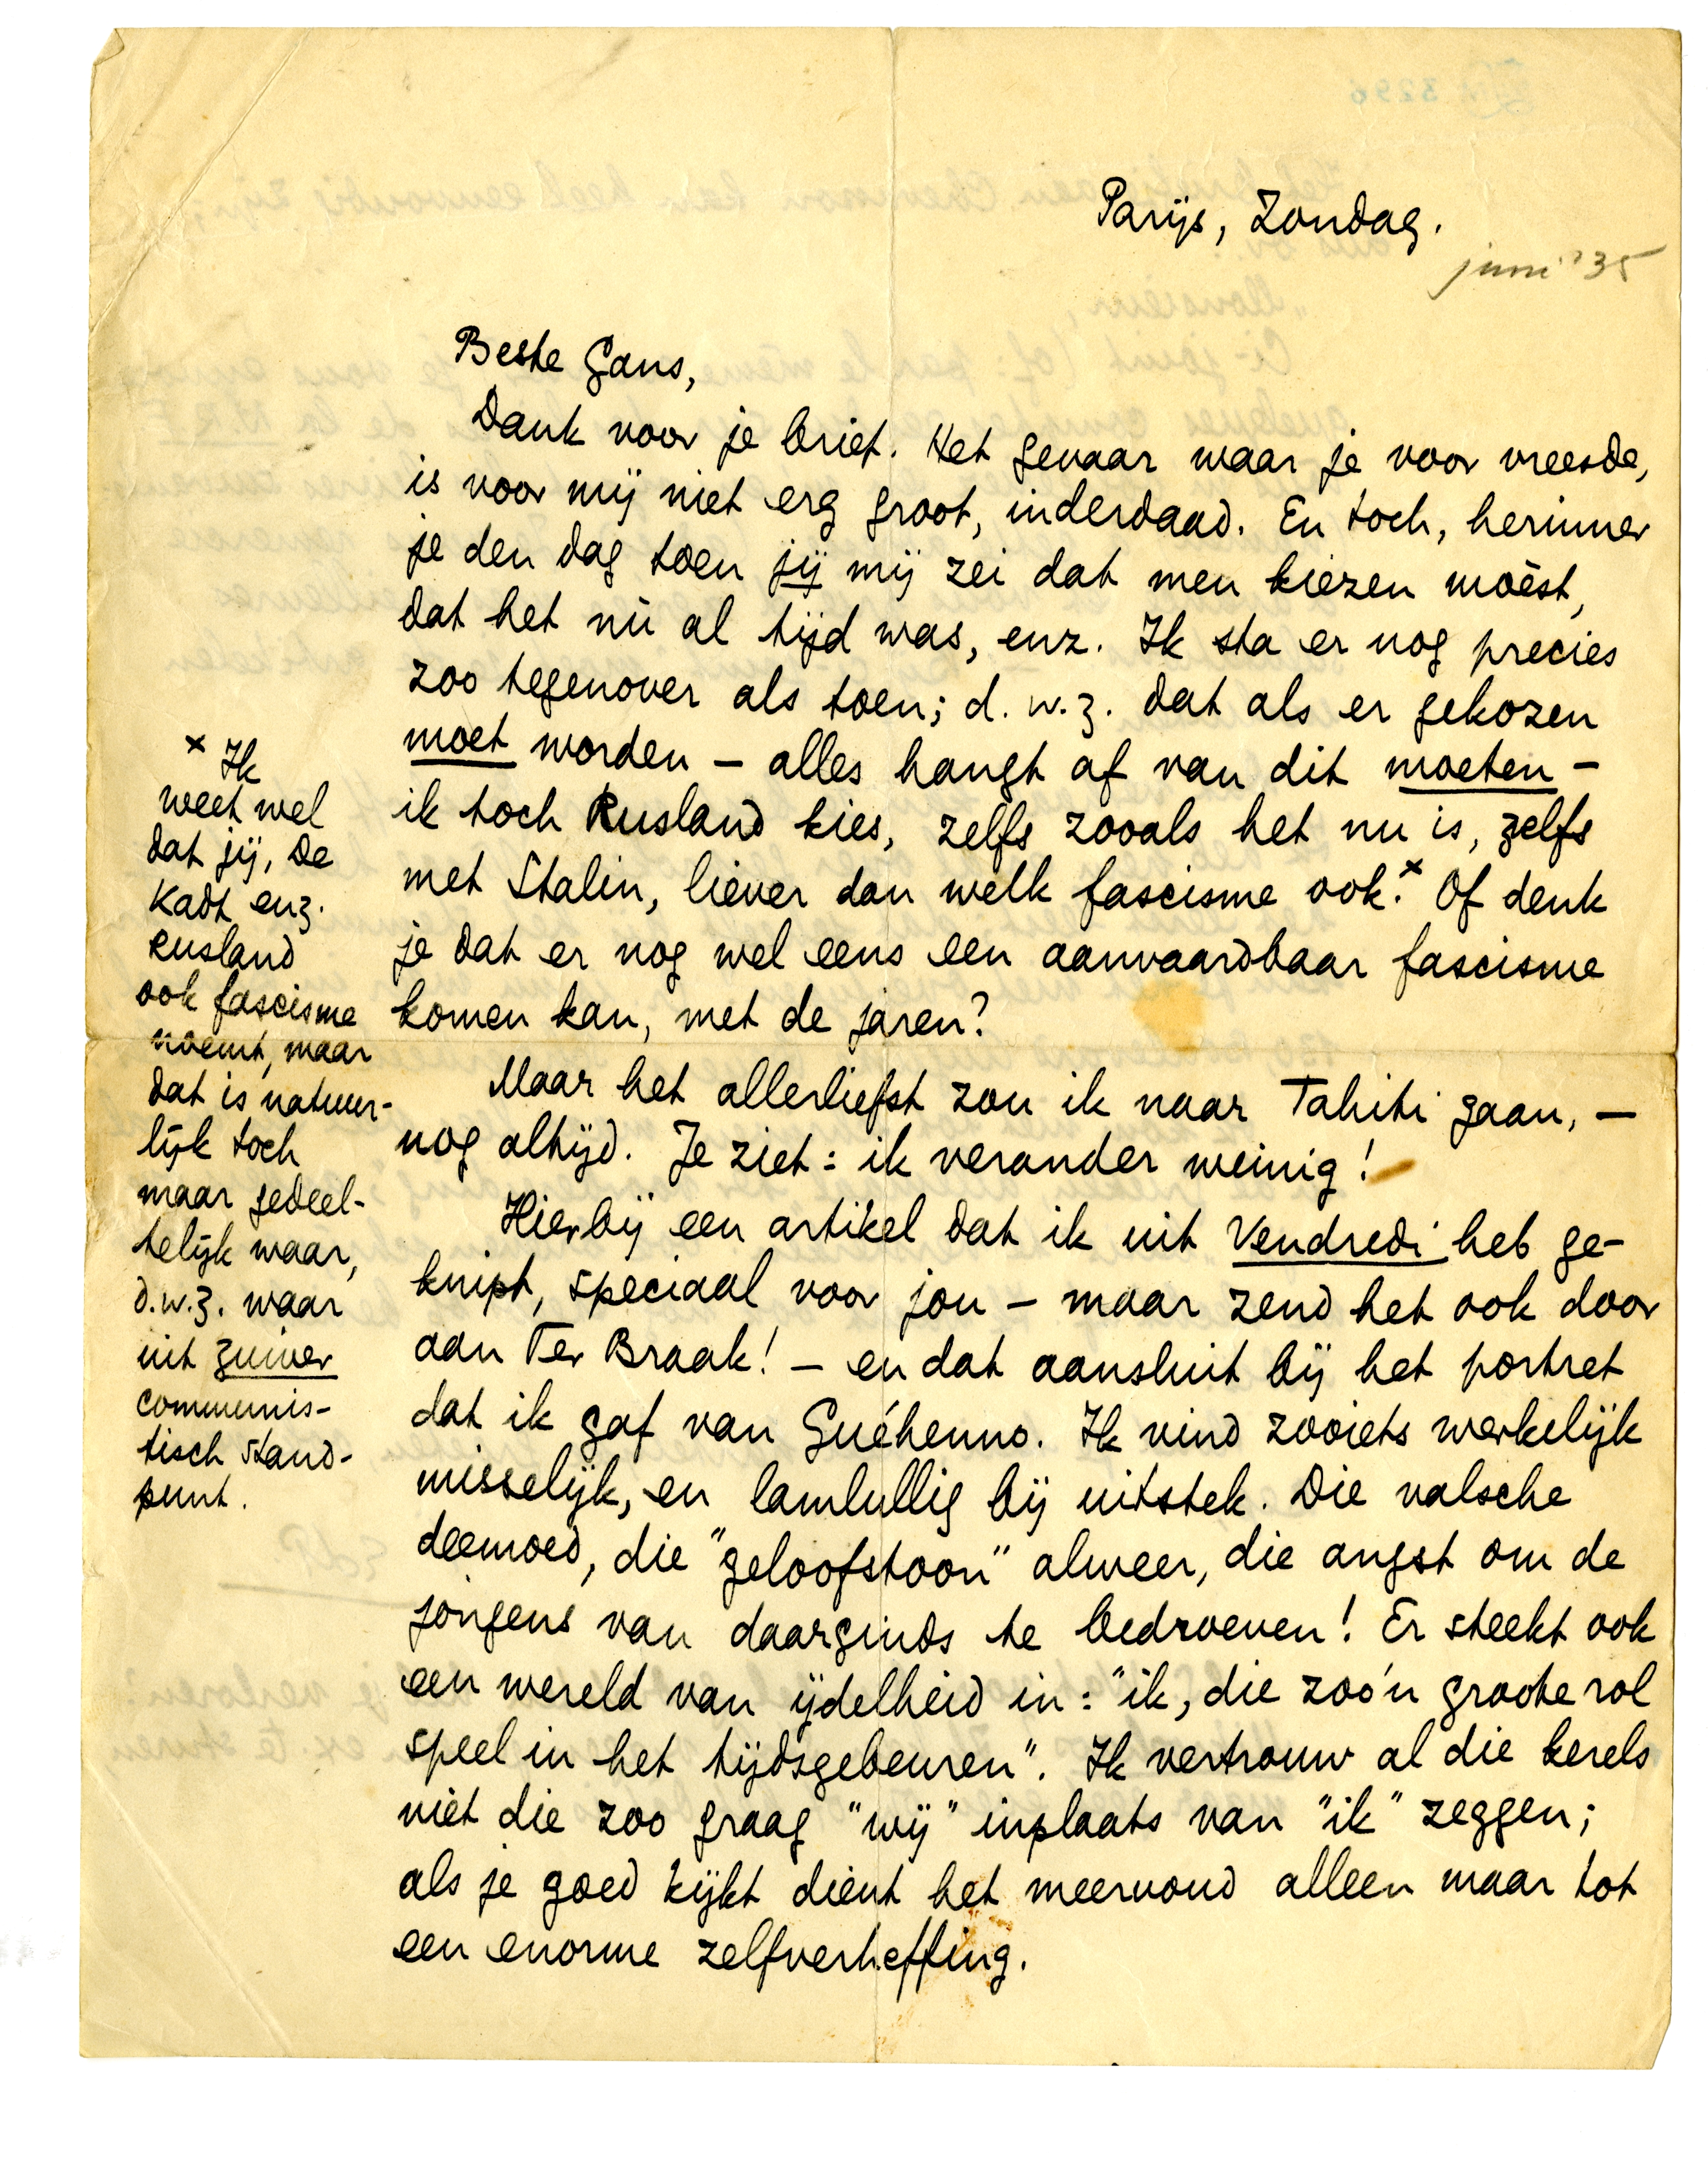 Parijs, Zondag.
juni '35
Beste Gans,
Dank voor je brief. Het gevaar waar je voor vreesde,
is voor mij niet erg groot, inderdaad. En toch, herinner
je den dag toen jij mij zei dat men kiezen moèst,
dat het nù al tijd was, enz. Ik sta er nog precies
zoo tegenover als toen; d.w.z. dat als er gekozen
moet worden – alles hangt af van dit moeten –
ik toch Rusland kies, zelfs zooals het nu is, zelfs
met Stalin, liever dan welk fascisme ook.x Of denk
je dat er nog wel eens een aanvaardbaar fascisme
komen kan, met de jaren?
Maar het allerliefst zou ik naar Tahiti gaan, –
nog altijd. Je ziet: ik verander weinig!
Hierbij een artikel dat ik uit Vendredi heb ge-
knipt, speciaal voor jou – maar zend het ook door
aan Ter Braak! – en dat aansluit bij het portret
dat ik gaf van Guéhenno. Ik vind zooiets werkelijk
misselijk, en lamlullig bij uitstek. Die valsche
deemoed, die "geloofstoon" alweer, die angst om de
jongens van daarginds te bedroeven! Er steekt ook
een wereld van ijdelheid in: "ik, die zoo'n groote rol
speel in het tijdsgebeuren". Ik vertrouw al die kerels
niet die zoo graag "wij" inplaats van "ik" zeggen;
als je goed kijkt dient het meervoud alleen maar tot
een enorme zelfverheffing.
x Ik
weet wel
dat jij, De
Kadt enz.
Rusland
ook fascisme
noemt, maar
dat is natuur-
lijk toch
maar gedeel-
telijk waar,
d.w.z. waar
uit zuiver
communis-
tisch stand-
punt.